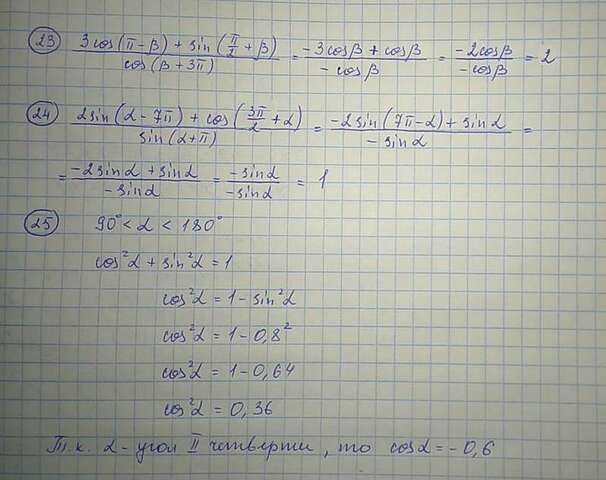 23 (3cos(π-β) + sin(π/2 + β))/(cos(β+3π)) = (-3cosβ + cosβ)/(-cosβ) = (-2cosβ)/(-cosβ) = 2
24 (2sin(α-7π) + cos(3π/2 + α))/(sin(α+π)) = (-2sin(7π-α) + sinα)/(-sinα) =
= (-2sinα + sinα)/(-sinα) = (-sinα)/(-sinα) = 1
25 90° < α < 180°
cos²α + sin²α = 1
cos²α = 1 - sin²α
cos²α = 1 - 0,8²
cos²α = 1 - 0,64
cos²α = 0,36
Т.к. α - угол II четверти, то cosα = -0,6